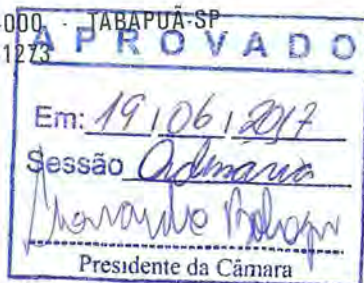 000 - TABAPUÃ-SP
1273
APROVADO
Em: 19/06/2017
Sessão
Presidente da Câmara